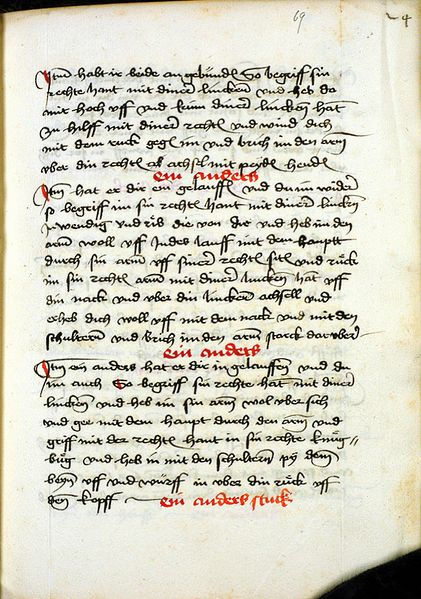 69
4
Itm̄ habt ir beide an gebūndē So begriff sin
rechte hant mit diner lincken vnd heb da
mit hoch vff vnd kūm diner lincken hāt
zu hilff mit diner rechtē vnd wind dich
mit dem ruck gegē im vnd brich im den arm̄
vber din rechtē achsel mit peydē hendē
ein anders
Itm̄ hat er dir ein gelauffē vnd du im wider
so begriff im sin rechtē hant mit diner lincken
Inwendig vnd rib die von dir vnd heb im den
arm̄ woll vff Indes lauff mit dem haupt
durch sin arm̄ vff siner rechtē sitē vnd ruͦck
im sin rechtē arm̄ mit diner linckēn hāt vff
din nack vnd vber din linckenn achsell vnd
erheb dich woll vff mit dem nack vnd mit den
schulternn vnd brich im den arm̄ starck dar vber
ein anders
Itm̄ ein anders hat er dir in gelauffenn vnd du
im auch So begriff sin rechte hāt mit diner
linckenn vnd heb im sin arm̄ wol vber sich
vnd gee mit dem haupt durch den arm̄ vnd
griff mit der rechtē hant in sin rechte knuͦg
buͦg vnd heb in mit den schulternn py dem̄
beyn̄ vff vnd wuͦrff in vber din ruͦck vff
den kopff
ein anders stuck